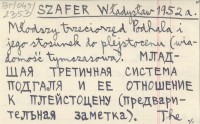 SZAFER Władysław 1952 a.
Młodszy trzeciorzęd Podhala i
jego stosunek do plejstocenu (wia-
domość tymczasowa). МЛАД-
ЩАЯ ТРЕТИЧНАЯ СИСТЕМА
ПОДГАЛЯ И ЕЕ ОТНОШЕНИЕ
К ПЛЕЙСТОЦЕНУ (предвари-
тельная заметка). The